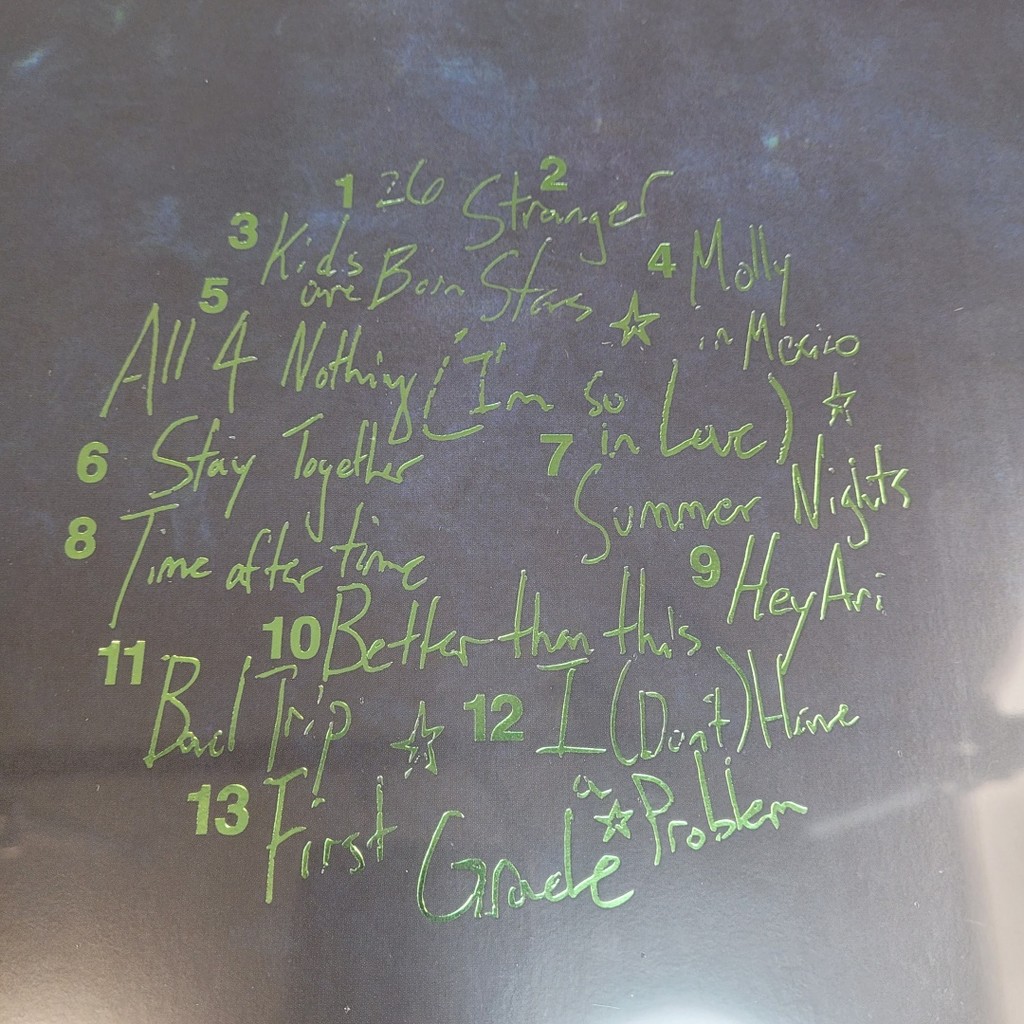 1 26 2 Stranger
3 Kids are Born Stars 4 Molly in Mexico
5 All 4 Nothing (I'm so in Love)
6 Stay Together 7 Summer Nights
8 Time after time 9 Hey Ari
10 Better than this
11 Bad Trip 12 I (Don't) Have a Problem
13 First Grade